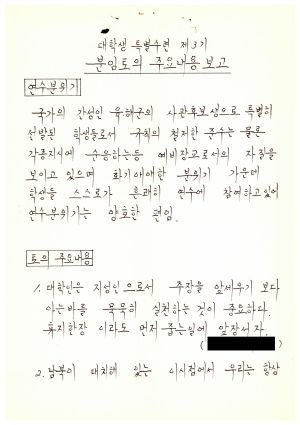 대학생 특별수련 제3기
분임토의 주요내용 보고
연수분위기
국가의 간성인 육·해군의 사관후보생으로 특별히
선발된 학생들로서 규칙의 철저한 준수는 물론
각종지시에 순응하는등 예비장교로서의 자질을
보이고 있으며 화기애애한 분위기 가운데
학생들 스스로가 흔쾌히 연수에 참여하고있어
연수분위기는 양호한 편임.
토의 주요내용
1. 대학인은 지성인으로서 주장을 앞세우기 보다
아는바를 묵묵히 실천하는 것이 중요하다.
휴지한장 이라도 먼저 줍는일에 앞장서자.
(
2. 남북이 대치해 있는 이시점에서 우리는 항상